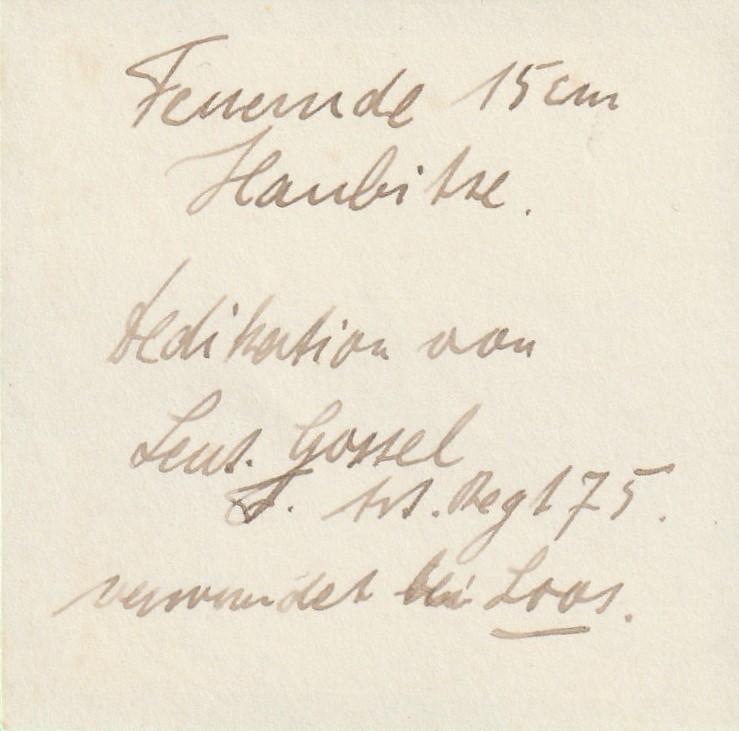 Feuernde 15 cm
Haubitze.
Dedikation von
Leut. Gossel
F. Art. Regt 75.
verwundet bei Loos.